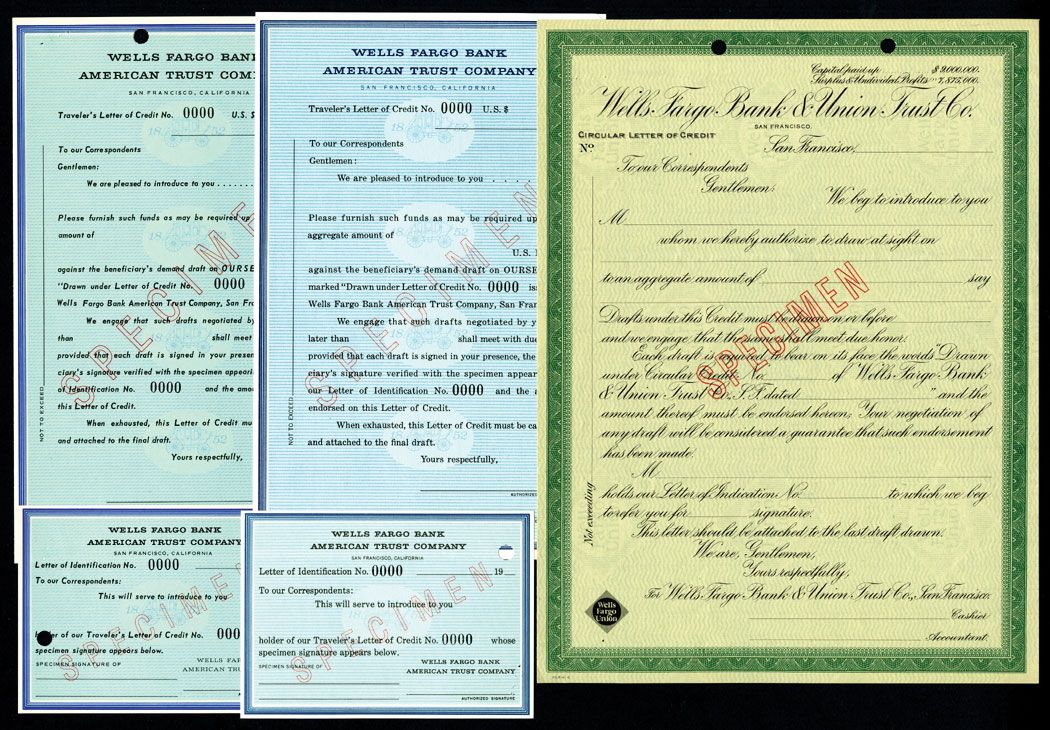 WELLS FARGO BANK
AMERICAN TRUST COMP
SAN FRANCISCO, CALIFORNIA
Traveler's Letter of Credit No. 0000 U.S. $
18 52
To our Correspondents
Gentlemen:
We are pleased to introduce to you . . . . . .
Please furnish such funds as may be required up
amount of
18 52
against the beneficiary's demand draft on OURSE
"Drawn under Letter of Credit No. 0000
Wells Fargo Bank American Trust Company, San Fra
We engage that such drafts negotiated by
than shall meet
provided that each draft is signed in your presen
ciary's signature verified with the specimen appeari
of Identification No. 0000 and the amou
this Letter of Credit.
When exhausted, this Letter of Credit mu
and attached to the final draft.
Yours respectfully,
NOT TO EXCEED
SPECIMEN
WELLS FARGO BANK
AMERICAN TRUST COMPANY
SAN FRANCISCO, CALIFORNIA
Traveler's Letter of Credit No. 0000 U.S. $
18 52
To our Correspondents
Gentlemen:
We are pleased to introduce to you . . . .
Please furnish such funds as may be required up
aggregate amount of
U.S.
18 52
against the beneficiary's demand draft on OURSE
marked "Drawn under Letter of Credit No. 0000 is
Wells Fargo Bank American Trust Company, San Fran
We engage that such drafts negotiated by y
later than shall meet with due
provided that each draft is signed in your presence, the
ciary's signature verified with the specimen appear
our Letter of Identification No. 0000 and the a
endorsed on this Letter of Credit.
When exhausted, this Letter of Credit must be ca
and attached to the final draft.
Yours respectfully,
AUTHORIZED
NOT TO EXCEED
SPECIMEN
Capital paid up $9,000,000.
Surplus & Undivided Profits 7,875,000.
Wells Fargo Bank & Union Trust Co.
SAN FRANCISCO.
CIRCULAR LETTER OF CREDIT
No. San Francisco,
To our Correspondents
Gentlemen:
We beg to introduce to you
M
whom we hereby authorize to draw at sight on
to an aggregate amount of say
Drafts under this Credit must be drawn on or before
and we engage that the same shall meet due honor.
Each draft is required to bear on its face the words "Drawn
under Circular Credit No. of Wells Fargo Bank
& Union Trust Co., S.F. dated " and the
amount thereof must be endorsed hereon; Your negotiation of
any draft will be considered a guarantee that such endorsement
has been made.
M.
holds our Letter of Indication No. to which we beg
to refer you for signature.
This letter should be attached to the last draft drawn.
We are, Gentlemen,
Yours respectfully,
For Wells Fargo Bank & Union Trust Co., San Francisco.
Cashier
Accountant.
Not exceeding
Wells
Fargo
Union
SPECIMEN
WELLS FARGO BANK
AMERICAN TRUST COMPANY
SAN FRANCISCO, CALIFORNIA
Letter of Identification No. 0000
To our Correspondents:
This will serve to introduce to you
of our Traveler's Letter of Credit No. 000
specimen signature appears below.
SPECIMEN SIGNATURE OF
WELLS FAR
AMERICAN TR
SPECIMEN
WELLS FARGO BANK
AMERICAN TRUST COMPANY
SAN FRANCISCO, CALIFORNIA
Letter of Identification No. 0000 19
To our Correspondents:
This will serve to introduce to you
holder of our Traveler's Letter of Credit No. 0000 whose
specimen signature appears below.
SPECIMEN SIGNATURE OF
WELLS FARGO BANK
AMERICAN TRUST COMPANY
AUTHORIZED SIGNATURE
SPECIMEN